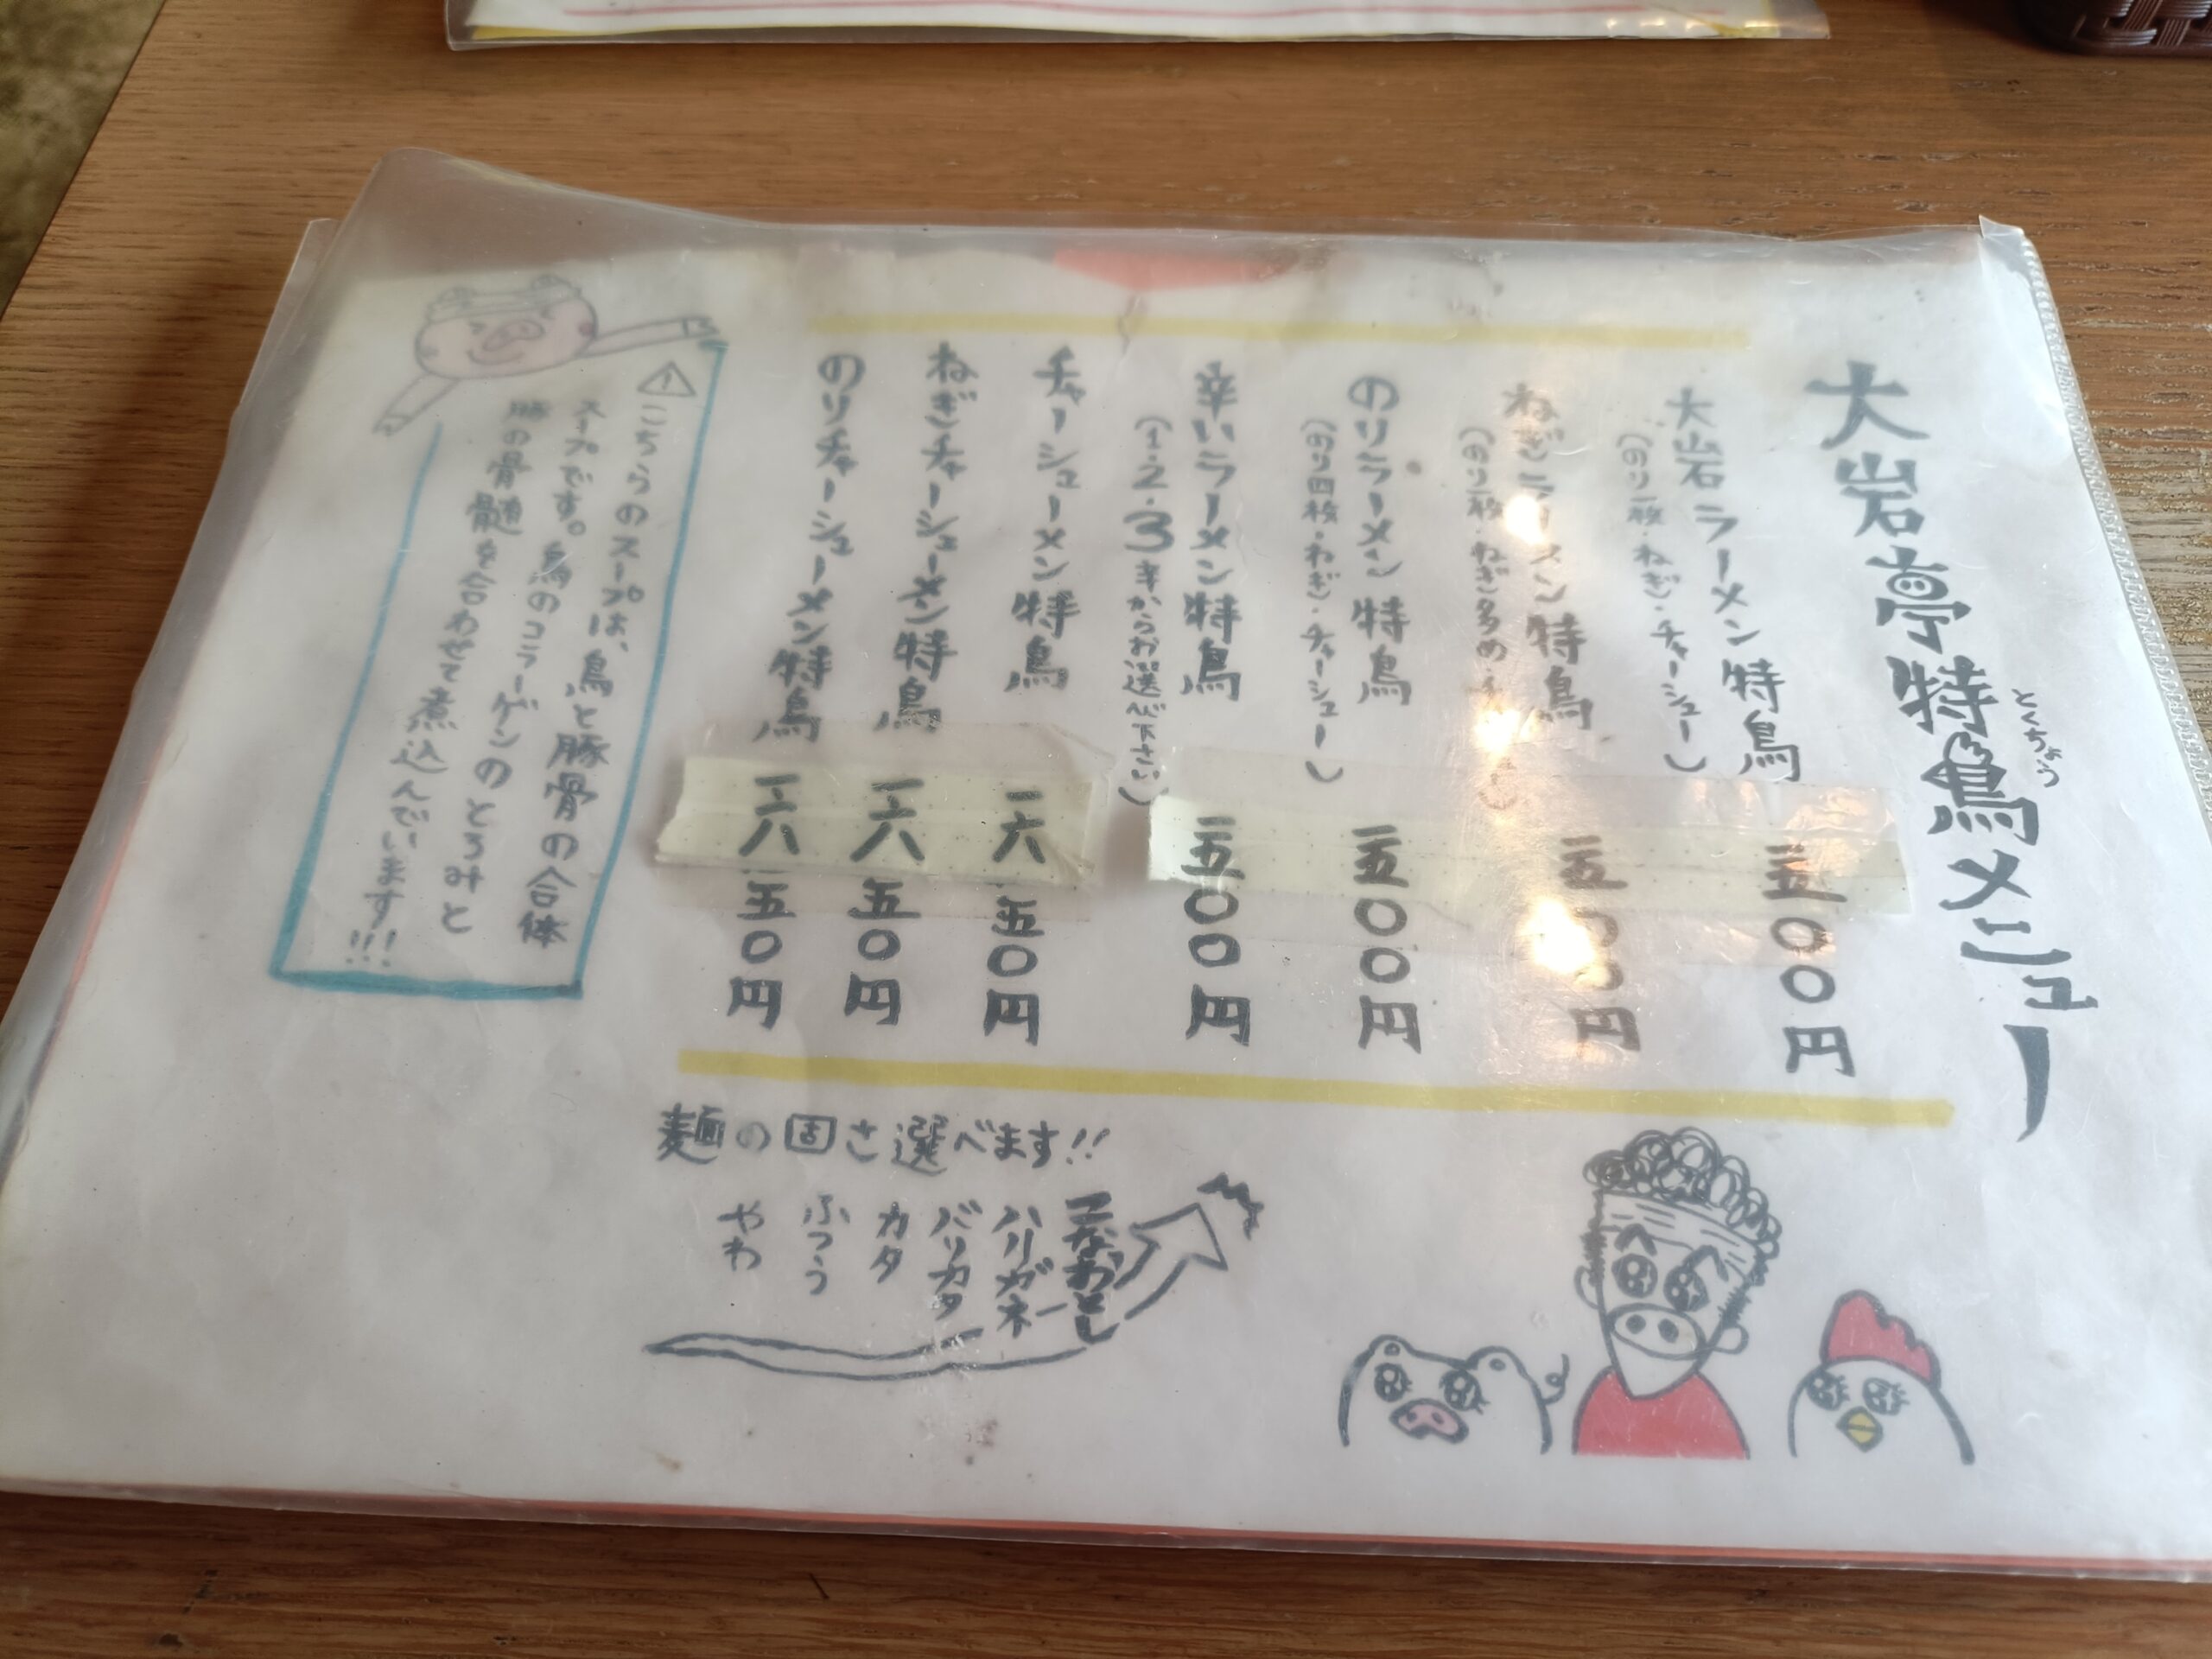 大岩亭特鳥メニュー
とくちょう
大岩ラーメン特鳥
(のり一枚・ねぎ・チャーシュー)
一五〇〇円
ねぎラーメン特鳥
(のり一枚・ねぎ多め・チ
一五〇〇円
のりラーメン特鳥
(のり四枚・ねぎ・チャーシュー)
一五〇〇円
辛いラーメン特鳥
(1・2・3辛からお選へび下さい)
一五〇〇円
チャーシューメン特鳥
一六五〇円
ねぎチャーシューメン特鳥
一六五〇円
のりチャーシューメン特鳥
一六五〇円
こちらのスープは、鳥と豚骨の合体
スープです。鳥のコラーゲンのとろみと
豚の骨髄を合わせて煮込んでいます!!!
麺の固さ選べます!!
こなおとし
ハリガネ
バリカタ
カタ
ふつう
やわ